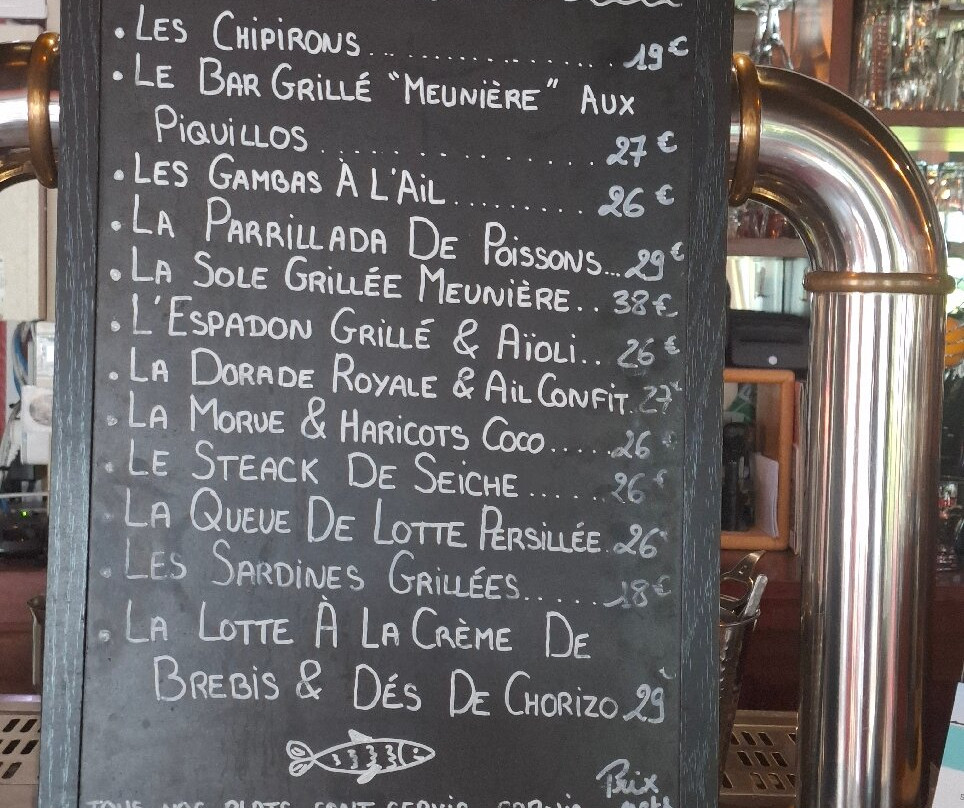 • LES CHIPIRONS................19€
• LE BAR GRILLÉ "MEUNIÈRE" AUX
PIQUILLOS................27€
• LES GAMBAS À L'AIL.........26€
• LA PARRILLADA DE POISSONS...29€
• LA SOLE GRILLÉE MEUNIÈRE..38€
• L'ESPADON GRILLÉ & AÏOLI..26€
• LA DORADE ROYALE & AIL CONFIT.27€
• LA MORUE & HARICOTS COCO.....26€
• LE STEACK DE SEICHE......26€
• LA QUEUE DE LOTTE PERSILLÉE.26€
• LES SARDINES GRILLÉES......18€
• LA LOTTE À LA CRÈME DE
BREBIS & DÉS DE CHORIZO 29€
Prix
TOUS NOS PLATS SONT SERVIS